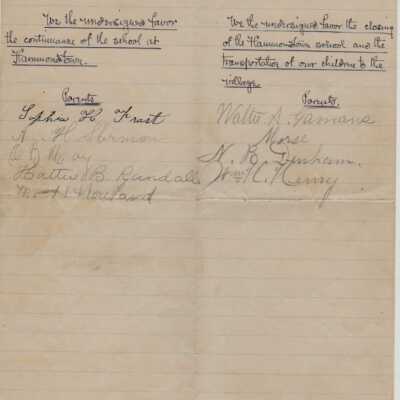 We the undersigned favor
the continuance of the school at
Hammondtown.
Parents
Sophia H. Frost
A. H. Shermon
C B May
Hattie B. Randall
M. A. Howland
We the undersigned favor the closing
of the Hammondtown school and the
transportation of our children to the
village
Parents.
Walter S. Yamans
Morse
N. B. Denham.
Wm H. Henry